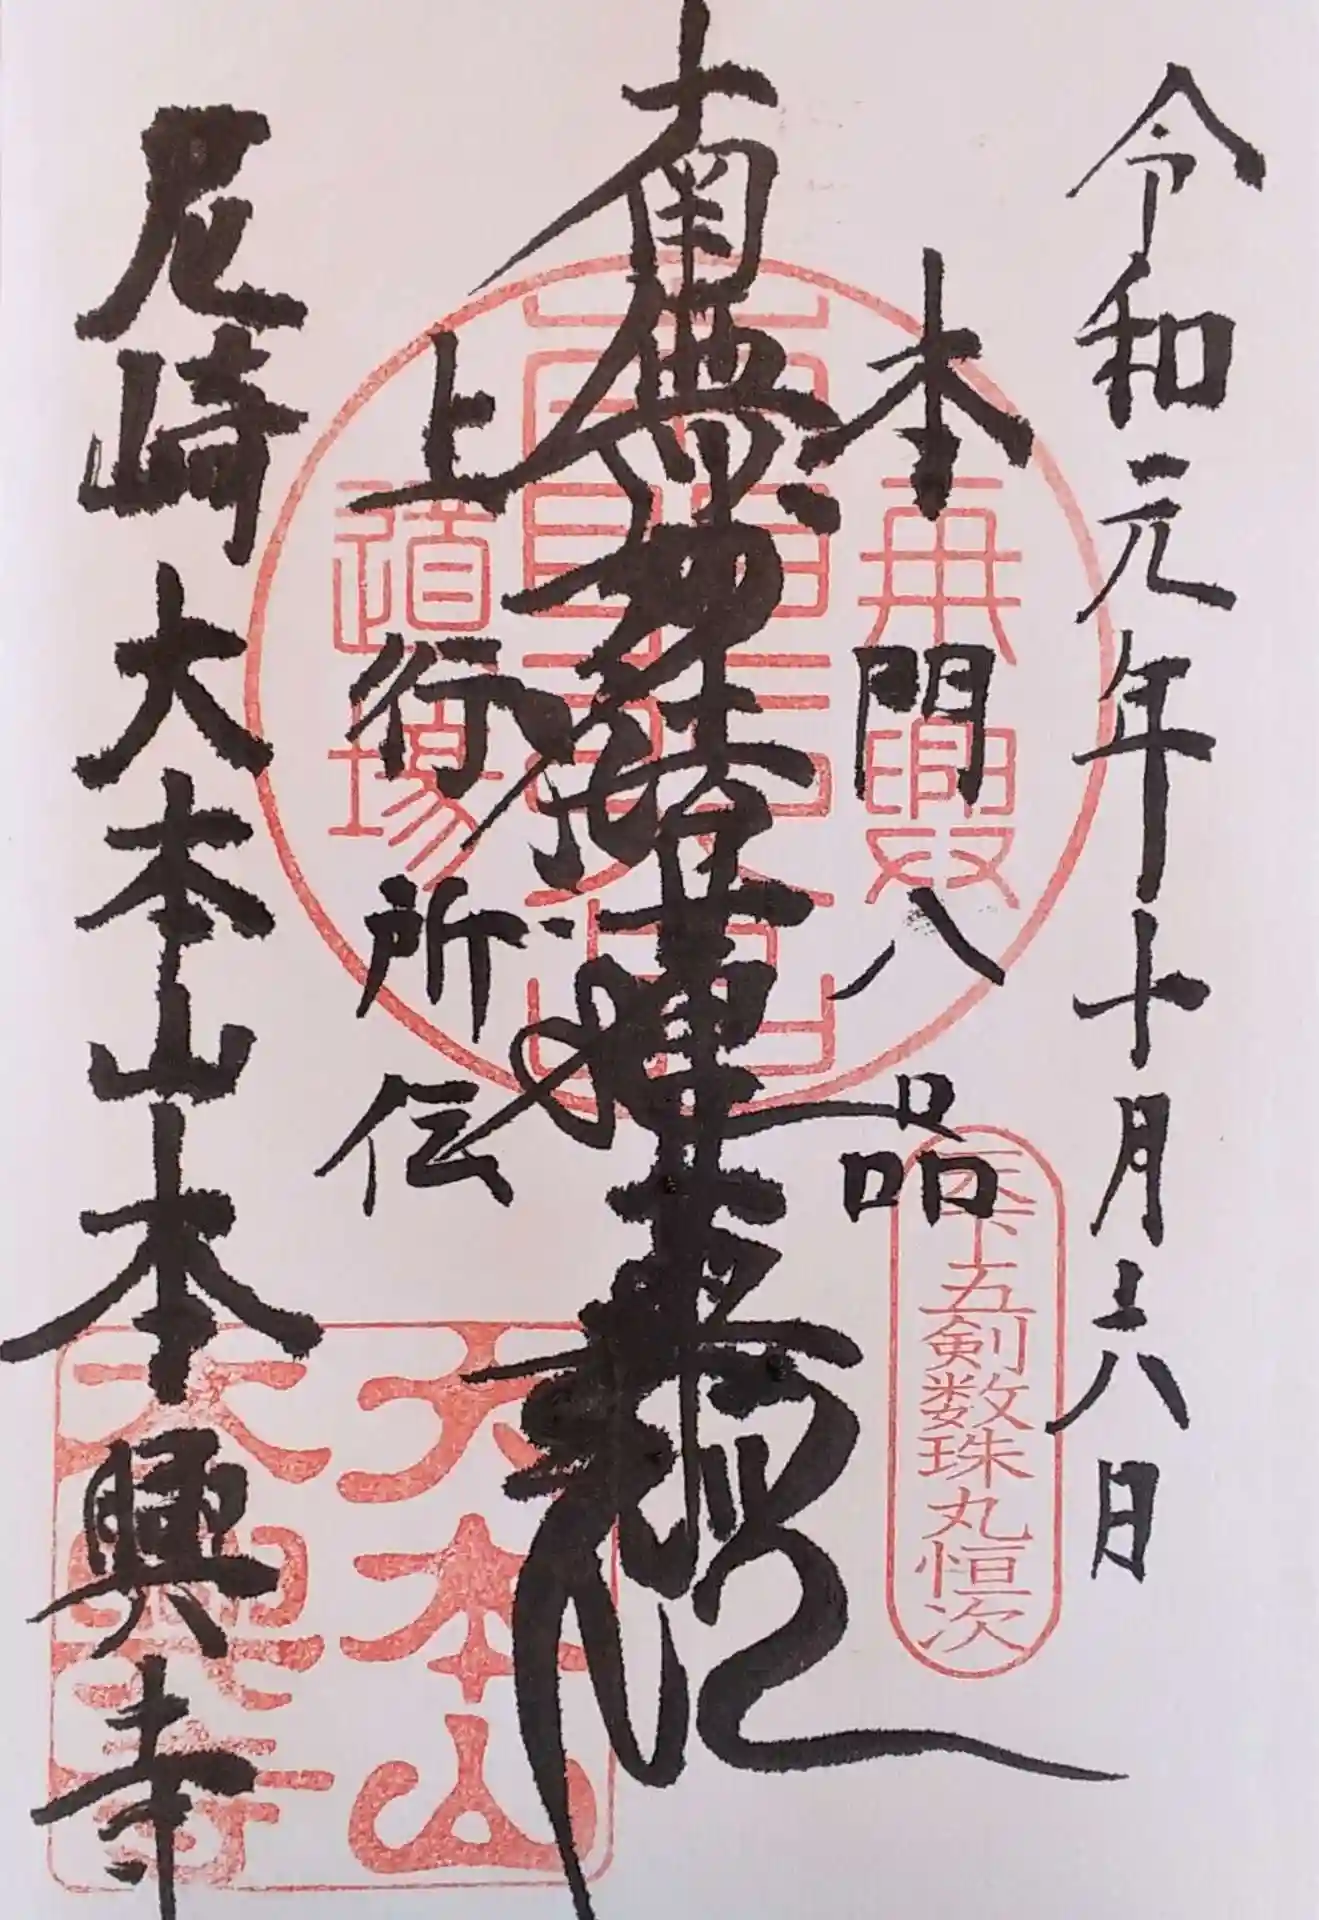 令和元年十月六日
本門八品
南無妙法蓮華経
上行所伝
尼崎大本山本興寺
天下五剣数珠丸恒次
道場
大本山
本興寺